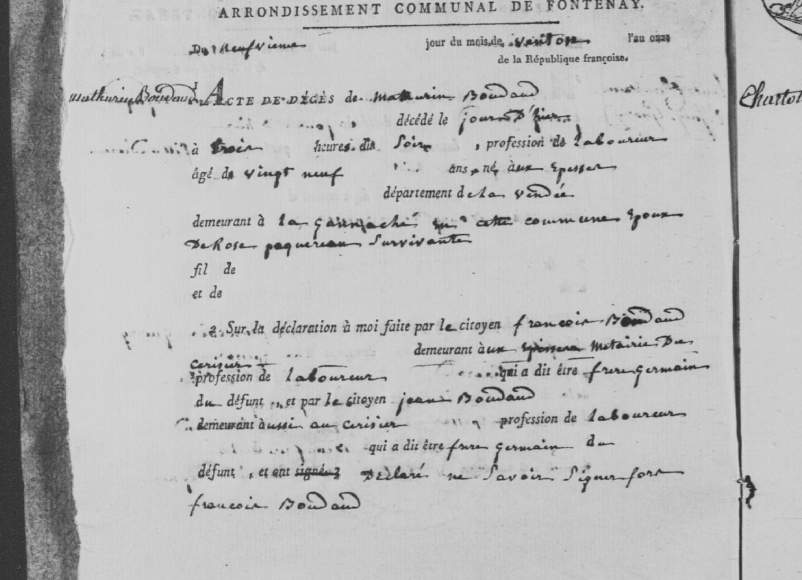 ARRONDISSEMENT COMMUNAL DE FONTENAY.
Du Neufvieme jour du mois de ventose l'an onze
de la République française.
Mathurin Boudaud ACTE DE DÉCÈS de Mathurin Boudaud
décédé le jour D'hier
à trois heures du Soir, profession de laboureur
âgé de vingt neuf ans, né aux Epesses
département de la vendée
demeurant à la en cette commune Epoux
De Rose paquereau Survivante
fil de
et de
Sur la déclaration à moi faite par le citoyen francois Boudaud
demeurant aux Metairie Du
Cerisier
profession de laboureur qui a dit être frere germain
du défunt, et par le citoyen jean Boudaud
demeurant aussi au Cerisier profession de laboureur
qui a dit être frere germain du
défunt, et ont signé Declaré ne Savoir Signer fors
francois Boudaud
Charlot